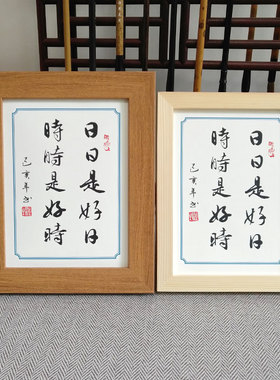 日日是好日
時時是好時
己亥年
日日是好日
時時是好時
己亥年